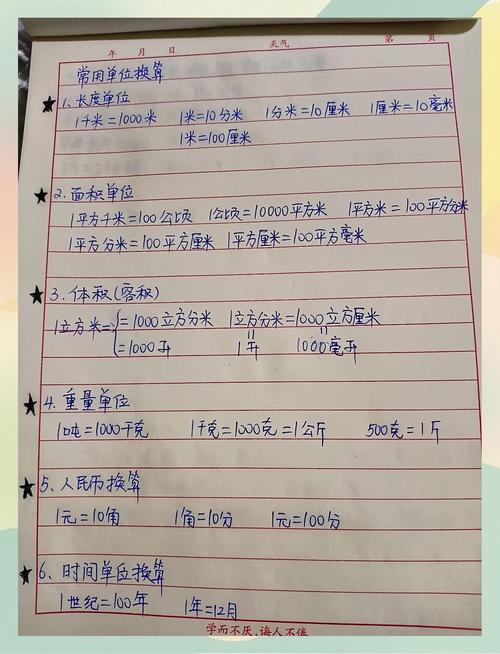 年 月 日 天气 第 页
常用单位换算
1、长度单位
1千米=1000米 1米=10分米 1分米=10厘米 1厘米=10毫米
1米=100厘米
2、面积单位
1平方千米=100公顷 1公顷=10000平方米 1平方米=100平方分米
1平方分米=100平方厘米 1平方厘米=100平方毫米
3、体积(容积)
1立方米= =1000立方分米 1立方分米=1000立方厘米
=1000升 1升 1000毫升
4、重量单位
1吨=1000千克 1千克=1000克=1公斤 500克=1斤
5、人民币换算
1元=10角 1角=10分 1元=100分
6、时间单位换算
1世纪=100年 1年=12月
学而不厌,诲人不倦